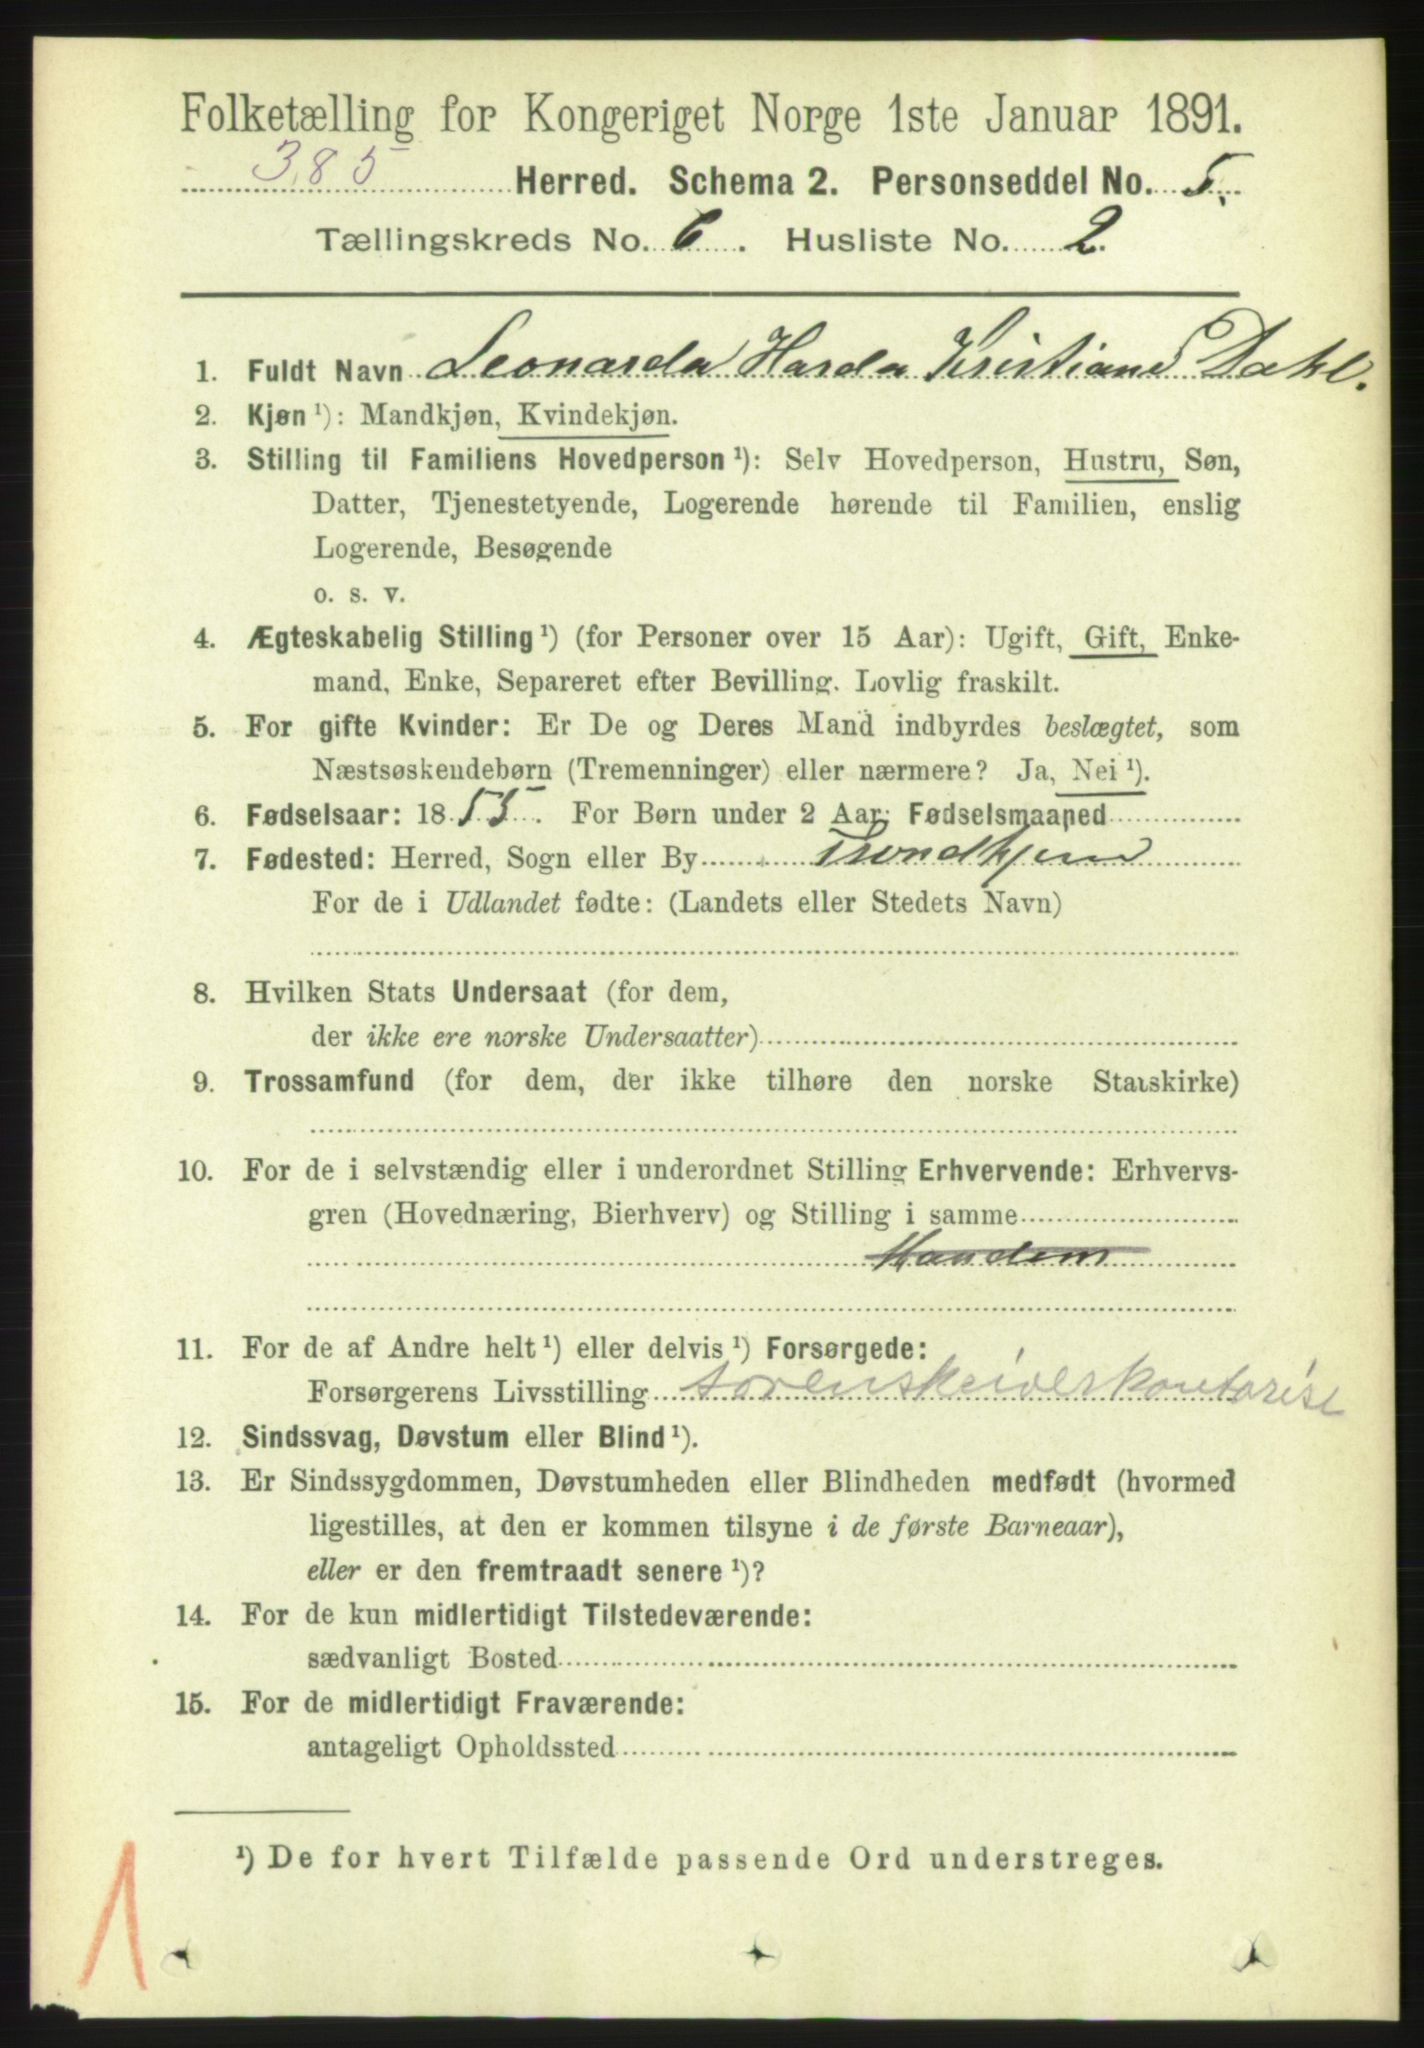 Folketælling for Kongeriget Norge 1ste Januar 1891.
385 Herred. Schema 2. Personseddel No. 5.
Tællingskreds No. 6. Husliste No. 2.
1. Fuldt Navn Leonarda Harda Kristiane Dahl.
2. Kjøn ¹): Mandkjøn, Kvindekjøn.
3. Stilling til Familiens Hovedperson ¹): Selv Hovedperson, Hustru, Søn,
Datter, Tjenestetyende, Logerende hørende til Familien, enslig
Logerende, Besøgende
o. s. v.
4. Ægteskabelig Stilling ¹) (for Personer over 15 Aar): Ugift, Gift, Enke-
mand, Enke, Separeret efter Bevilling. Lovlig fraskilt.
5. For gifte Kvinder: Er De og Deres Mand indbyrdes beslægtet, som
Næstsøskendebørn (Tremenninger) eller nærmere? Ja, Nei ¹).
6. Fødselsaar: 1855. For Børn under 2 Aar: Fødselsmaaned
7. Fødested: Herred, Sogn eller By Trondhjem
For de i Udlandet fødte: (Landets eller Stedets Navn)
8. Hvilken Stats Undersaat (for dem,
der ikke ere norske Undersaatter)
9. Trossamfund (for dem, der ikke tilhøre den norske Statskirke)
10. For de i selvstændig eller i underordnet Stilling Erhvervende: Erhvervs-
gren (Hovednæring, Bierhverv) og Stilling i samme
Manden
11. For de af Andre helt ¹) eller delvis ¹) Forsørgede:
Forsørgerens Livsstilling sorenskriverkontorist
12. Sindssvag, Døvstum eller Blind ¹).
13. Er Sindssygdommen, Døvstumheden eller Blindheden medfødt (hvormed
ligestilles, at den er kommen tilsyne i de første Barneaar),
eller er den fremtraadt senere ¹)?
14. For de kun midlertidigt Tilstedeværende:
sædvanligt Bosted
15. For de midlertidigt Fraværende:
antageligt Opholdssted
¹) De for hvert Tilfælde passende Ord understreges.
1